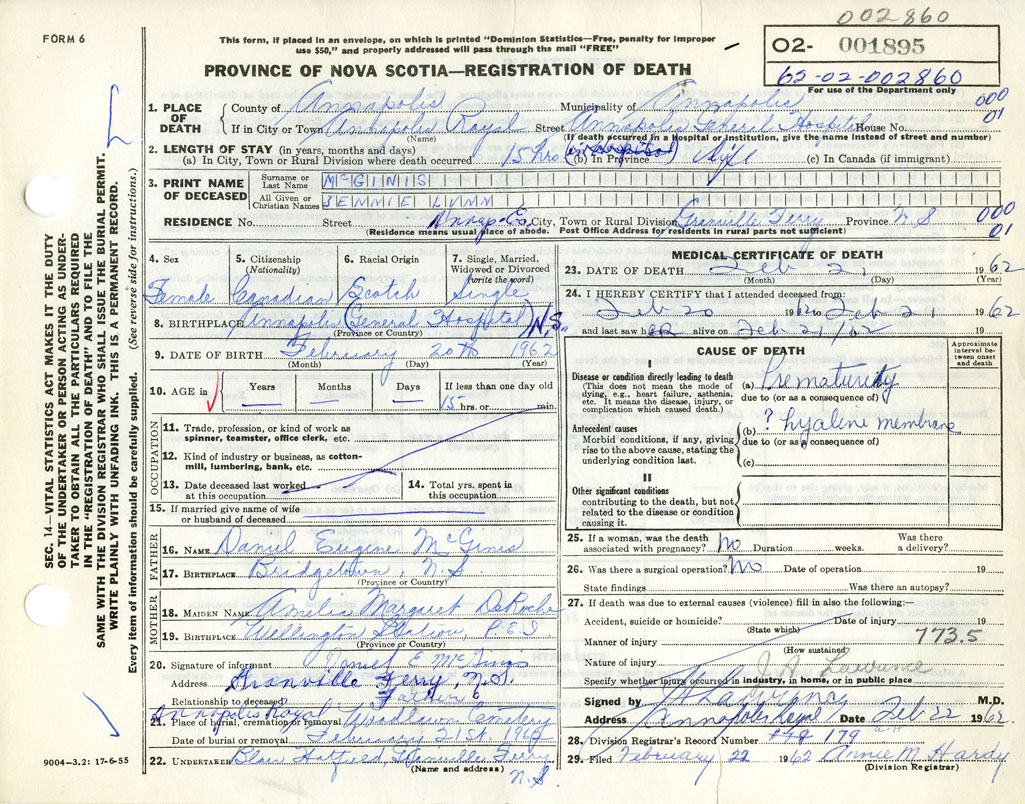 002860
FORM 6
This form, if placed in an envelope, on which is printed "Dominion Statistics—Free, penalty for improper
use $50," and properly addressed will pass through the mail "FREE"
02- 001895
62-02-002860
For use of the Department only
PROVINCE OF NOVA SCOTIA—REGISTRATION OF DEATH
SEC. 14—VITAL STATISTICS ACT MAKES IT THE DUTY
OF THE UNDERTAKER OR PERSON ACTING AS UNDER-
TAKER TO OBTAIN ALL THE PARTICULARS REQUIRED
IN THE "REGISTRATION OF DEATH" AND TO FILE THE
SAME WITH THE DIVISION REGISTRAR WHO SHALL ISSUE THE BURIAL PERMIT.
WRITE PLAINLY WITH UNFADING INK. THIS IS A PERMANENT RECORD.
Every item of information should be carefully supplied. (See reverse side for instructions.)
1. PLACE OF DEATH
County of Annapolis Municipality of Annapolis 000
01
If in City or Town Annapolis Royal Street Annapolis General Hospital House No.
(Name) (If death occurred in a Hospital or Institution, give the name instead of street and number)
2. LENGTH OF STAY (in years, months and days)
(a) In City, Town or Rural Division where death occurred 15 hrs. (in hospital) (b) In Province Life (c) In Canada (if immigrant)
3. PRINT NAME OF DECEASED
Surname or Last Name McGINIS
All Given or Christian Names JENNIE LYNN
RESIDENCE No. Street Annap. Co. City, Town or Rural Division Granville Ferry Province N S 000
01
(Residence means usual place of abode. Post Office Address for residents in rural parts not sufficient)
4. Sex
Female
5. Citizenship (Nationality)
Canadian
6. Racial Origin
Scotch
7. Single, Married, Widowed or Divorced (write the word)
Single
8. BIRTHPLACE Annapolis (General Hospital) N.S.
(Province or Country)
9. DATE OF BIRTH February 20th 1962
(Month) (Day) (Year)
10. AGE in
Years — Months — Days — If less than one day old
15 hrs. or min.
OCCUPATION
11. Trade, profession, or kind of work as
spinner, teamster, office clerk, etc.
12. Kind of industry or business, as cotton-
mill, lumbering, bank, etc.
13. Date deceased last worked
at this occupation
14. Total yrs. spent in
this occupation
15. If married give name of wife
or husband of deceased
FATHER
16. NAME Daniel Eugine McGinis
17. BIRTHPLACE Bridgetown, N.S.
(Province or Country)
MOTHER
18. MAIDEN NAME Amelia Margaret DeRoche
19. BIRTHPLACE Wellington Station, P.E.I
(Province or Country)
20. Signature of informant Daniel E McGinis
Address Granville Ferry, N.S.
Relationship to deceased Father
Annapolis Royal
21. Place of burial, cremation or removal Woodlawn Cemetery
Date of burial or removal February 21st 1962
22. UNDERTAKER Blair Hatfield Granville Ferry
(Name and address) N.S.
9004-3.2: 17-6-55
MEDICAL CERTIFICATE OF DEATH
23. DATE OF DEATH Feb 21 1962
(Month) (Day) (Year)
24. I HEREBY CERTIFY that I attended deceased from:
Feb 20 1962 to Feb 21 1962
and last saw her alive on Feb 21/62 19
CAUSE OF DEATH
Approximate interval between onset and death
I
Disease or condition directly leading to death
(This does not mean the mode of
dying, e.g., heart failure, asthenia,
etc. It means the disease, injury, or
complication which caused death.)
(a) Prematurity
due to (or as a consequence of)
Antecedent causes
Morbid conditions, if any, giving
rise to the above cause, stating the
underlying condition last.
(b) ? hyaline membrane
due to (or as a consequence of)
(c)
II
Other significant conditions
contributing to the death, but not
related to the disease or condition
causing it.
25. If a woman, was the death
associated with pregnancy? No Duration weeks. Was there
a delivery?
26. Was there a surgical operation? No Date of operation 19
State findings Was there an autopsy?
27. If death was due to external causes (violence) fill in also the following:—
Accident, suicide or homicide? Date of injury 19
(State which)
773.5
Manner of injury
(How sustained)
Nature of injury J A Lawrance
Specify whether injury occurred in industry, in home, or in public place
Signed by M.D.
Address Annapolis Royal Date Feb 22 1962
28. Division Registrar's Record Number 179
29. Filed February 22 1962 Annie M. Hardy
(Division Registrar)